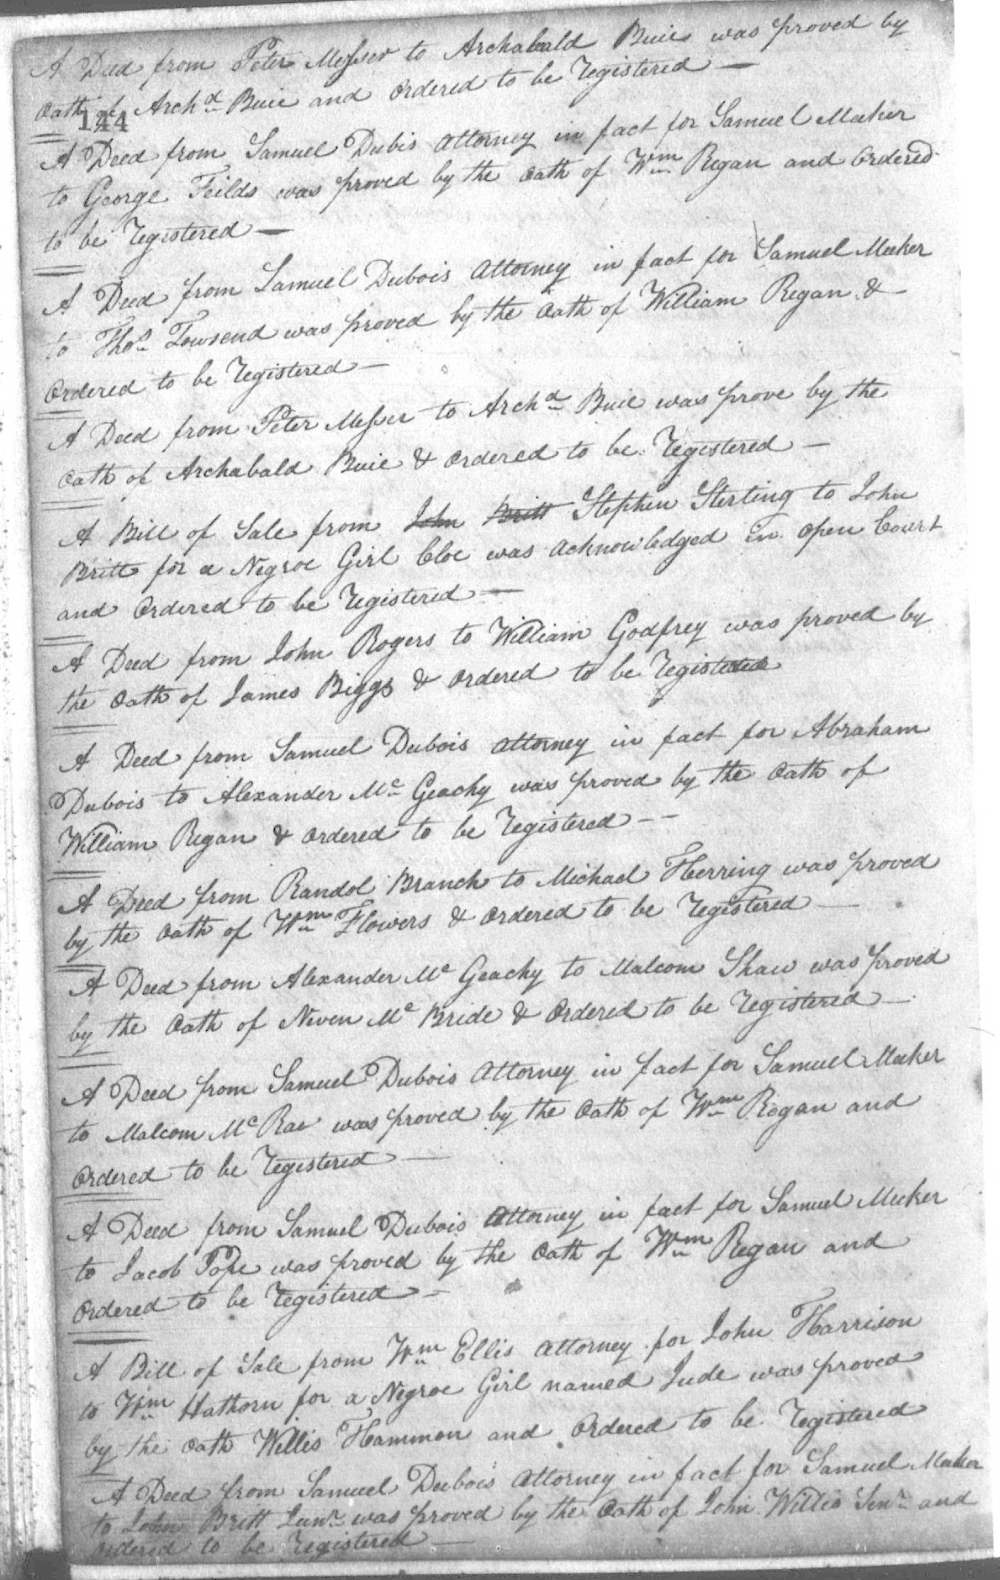 A Deed from Peter Messer to Archabald Buie was proved by
Oath of Archd Buie and ordered to be Registered —
144
A Deed from Samuel Dubis attorney in fact for Samuel Meeker
to George Feilds was proved by the Oath of Wm Regan and Ordered
to be Registered —
A Deed from Samuel Dubois Attorney in fact for Samuel Meeker
to Thos Towsend was proved by the Oath of William Regan &
Ordered to be Registered —
A Deed from Peter Messer to Archd Buie was prove by the
Oath of Archabald Buie & Ordered to be Registered —
A Bill of Sale from John Britt Stephen Sterting to John
Britt for a Negroe Girl Cloe was acknowledged in open Court
and Ordered to be Registered —
A Deed from John Rogers to William Godfrey was proved by
the Oath of James Biggs & Ordered to be Registered
A Deed from Samuel Dubois attorney in fact for Abraham
Dubois to Alexander Mc Geachy was proved by the Oath of
William Regan & Ordered to be Registered — —
A Deed from Randol Branch to Michael Herring was proved
by the Oath of Wm Flowers & Ordered to be Registered —
A Deed from Alexander Mc Geachy to Malcom Shaw was proved
by the Oath of Neven Mc Bride & Ordered to be Registered —
A Deed from Samuel Dubois Attorney in fact for Samuel Meeker
to Malcom Mc Rae was proved by the Oath of Wm Regan and
Ordered to be Registered —
A Deed from Samuel Dubois Attorney in fact for Samuel Meeker
to Jacob Pope was proved by the Oath of Wm Regan and
Ordered to be Registered —
A Bill of Sale from Wm Ellis Attorney for John Harrison
to Wm Hathorn for a Negroe Girl named Jude was proved
by the Oath Willis Hammon and Ordered to be Registered
A Deed from Samuel Dubois Attorney in fact for Samuel Meeker
to John Britt Junr was proved by the Oath of John Willis Senr and
Ordered to be Registered —